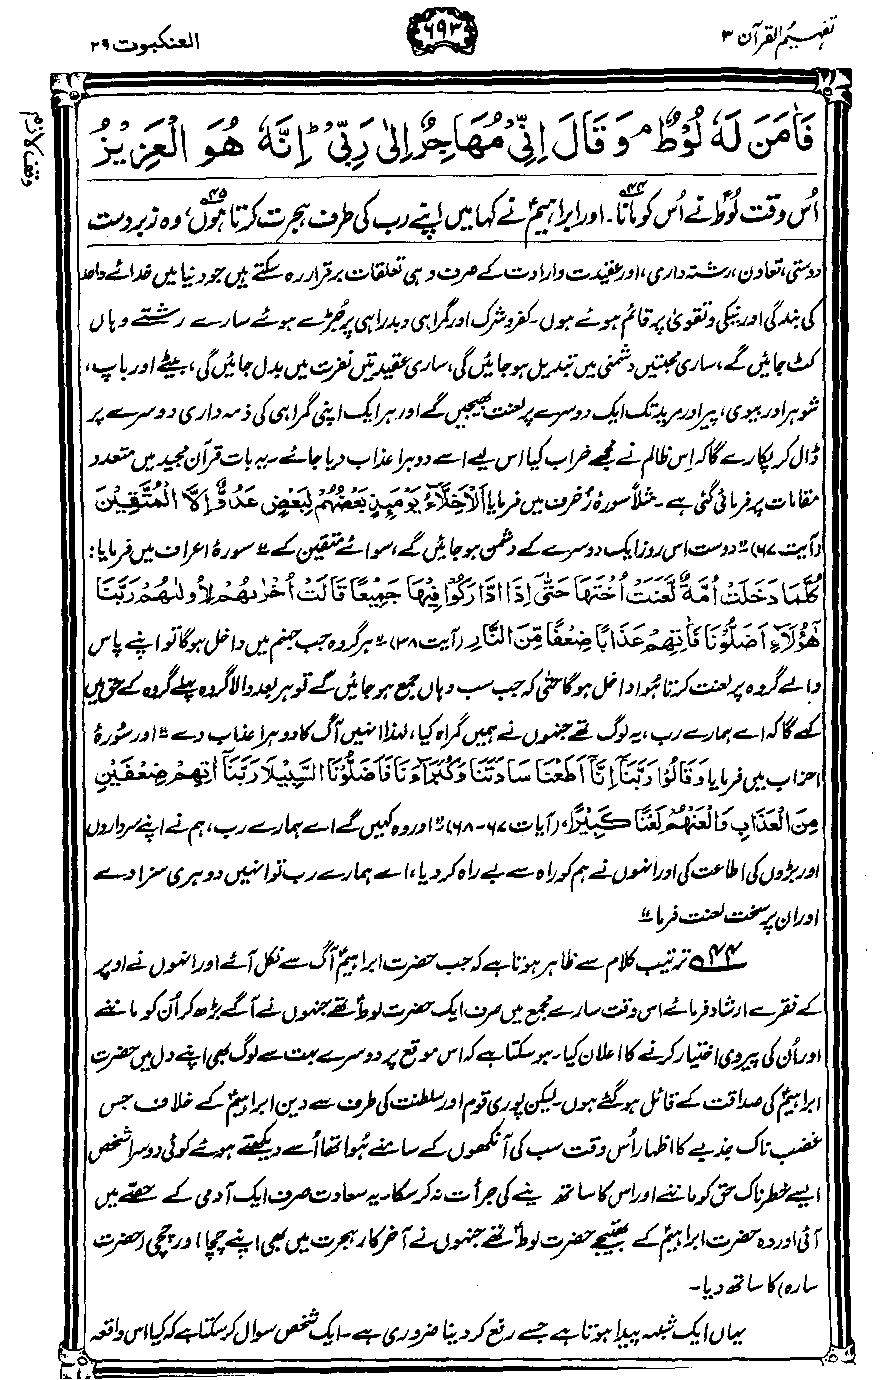 تفہیم القرآن ۳
۶۹۳
العنکبوت ۲۹
وقف لازم
فَاٰمَنَ لَهٗ لُوْطٌ ۘ وَقَالَ اِنِّیْ مُهَاجِرٌ اِلٰی رَبِّیْ ؕ اِنَّهٗ هُوَ الْعَزِیْزُ
اُس وقت لوطؑ نے اُس کو مانا۴۴۔ اور ابراہیمؑ نے کہا میں اپنے رب کی طرف ہجرت کرتا ہوں۴۵، وہ زبردست
دوستی، تعاون، رشتہ داری، اور عقیدت و ارادت کے صرف وہی تعلقات برقرار رہ سکتے ہیں جو دنیا میں خدائے واحد
کی بندگی اور نیکی و تقویٰ پر قائم ہوئے ہوں۔ کفر و شرک اور گمراہی و بدراہی پر جُڑے ہوئے سارے رشتے وہاں
کٹ جائیں گے، ساری محبتیں دشمنی میں تبدیل ہو جائیں گی، ساری عقیدتیں نفرت میں بدل جائیں گی، بیٹے اور باپ،
شوہر اور بیوی، پیر اور مرید تک ایک دوسرے پر لعنت بھیجیں گے اور ہر ایک اپنی گمراہی کی ذمہ داری دوسرے پر
ڈال کر پکارے گا کہ اِس ظالم نے مجھے خراب کیا اس لیے اسے دوہرا عذاب دیا جائے۔ یہ بات قرآن مجید میں متعدد
مقامات پر فرمائی گئی ہے۔ مثلاً سورۂ زُخرف میں فرمایا اَلْاَخِلَّآءُ یَوْمَئِذٍۭ بَعْضُهُمْ لِبَعْضٍ عَدُوٌّ اِلَّا الْمُتَّقِیْنَ
(آیت ۶۷) "دوست اس روز ایک دوسرے کے دشمن ہو جائیں گے، سوائے متقین کے"۔ سورۂ اعراف میں فرمایا:
كُلَّمَا دَخَلَتْ اُمَّةٌ لَّعَنَتْ اُخْتَهَا حَتّٰۤی اِذَا ادَّارَكُوْا فِیْهَا جَمِیْعًا قَالَتْ اُخْرٰىهُمْ لِاُوْلٰىهُمْ رَبَّنَا
هٰۤؤُلَآءِ اَضَلُّوْنَا فَاٰتِهِمْ عَذَابًا ضِعْفًا مِّنَ النَّارِ (آیت ۳۸) "ہر گروہ جب جہنم میں داخل ہوگا تو اپنے پاس
والے گروہ پر لعنت کرتا ہوا داخل ہوگا حتیٰ کہ جب سب وہاں جمع ہو جائیں گے تو ہر بعد والا گروہ پہلے گروہ کے حق میں
کہے گا کہ اے ہمارے رب، یہ لوگ تھے جنہوں نے ہمیں گمراہ کیا، لہٰذا انہیں آگ کا دوہرا عذاب دے"۔ اور سورۂ
احزاب میں فرمایا وَقَالُوْا رَبَّنَاۤ اِنَّاۤ اَطَعْنَا سَادَتَنَا وَكُبَرَآءَنَا فَاَضَلُّوْنَا السَّبِیْلَا رَبَّنَاۤ اٰتِهِمْ ضِعْفَیْنِ
مِنَ الْعَذَابِ وَالْعَنْهُمْ لَعْنًا كَبِیْرًا، (آیات ۶۷-۶۸) "اور وہ کہیں گے اے ہمارے رب، ہم نے اپنے سرداروں
اور بڑوں کی اطاعت کی اور انہوں نے ہم کو راہ سے بے راہ کر دیا، اے ہمارے رب تو انہیں دوہری سزا دے
اور ان پر سخت لعنت فرما"۔
۴۴؎ ترتیب کلام سے ظاہر ہوتا ہے کہ جب حضرت ابراہیمؑ آگ سے نکل آئے اور انہوں نے اوپر
کے فقرے ارشاد فرمائے اس وقت سارے مجمع میں صرف ایک حضرت لوطؑ تھے جنہوں نے آگے بڑھ کر اُن کو ماننے
اور اُن کی پیروی اختیار کرنے کا اعلان کیا۔ ہو سکتا ہے کہ اس موقع پر دوسرے بہت سے لوگ بھی اپنے دل میں حضرت
ابراہیمؑ کی صداقت کے قائل ہو گئے ہوں۔ لیکن پوری قوم اور سلطنت کی طرف سے دین ابراہیمؑ کے خلاف جس
غضب ناک جذبے کا اظہار اُس وقت سب کی آنکھوں کے سامنے ہُوا تھا اُسے دیکھتے ہوئے کوئی دوسرا شخص
ایسے خطرناک حق کو ماننے اور اس کا ساتھ دینے کی جرأت نہ کر سکا۔ یہ سعادت صرف ایک آدمی کے حصّے میں
آئی اور وہ حضرت ابراہیمؑ کے بھتیجے حضرت لوطؑ تھے جنہوں نے آخرکار ہجرت میں بھی اپنے چچا اور چچی (حضرت
سارہ) کا ساتھ دیا۔
یہاں ایک شبہہ پیدا ہوتا ہے جسے رفع کر دینا ضروری ہے۔ ایک شخص سوال کر سکتا ہے کہ کیا اس واقعہ